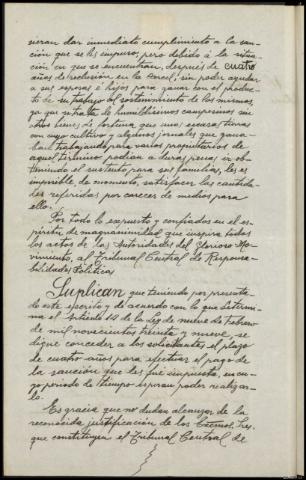 sieran dar inmediato cumplimiento a la san-
ción que se les impuso, pero debido a la situa-
ción en que se encuentran, después de cuatro
años de reclusión en la carcel, sin poder ayudar
a sus esposas e hijos para ganar con el produc-
to de su trabajo el sostenimiento de los mismos,
ya que se trata de humildísimos campesinos sin
otros bienes de fortuna que unas escasas tierras
con cuyo cultivo y algunos jornales que gana-
ban trabajando para varios propietarios de
aquel término podían a duras penas ir ob-
teniendo el sustento para sus familias, les es
imposible de momento, satisfacer las cantida-
des referidas por carecer de medios para
ello.
Por todo lo expuesto y confiados en el es-
píritu de magnanimidad que inspira todos
los actos de las Autoridades del Glorioso Mo-
vimiento, al Tribunal Central de Responsa-
bilidades Políticas
Suplican que teniendo por presenta-
do este escrito y de acuerdo con lo que determi-
na el Artículo 14 de la Ley de nueve de Febrero
de mil novecientos treinta y nueve, se
digne conceder a los solicitantes el plazo
de cuatro años para efectuar el pago de
la sanción que les fué impuesta, en cu-
yo periodo de tiempo esperan poder realizar-
lo.
Es gracia que no dudan alcanzar de la
reconocida justificación de los Excmos. Sres.
que constituyen el Tribunal Central de